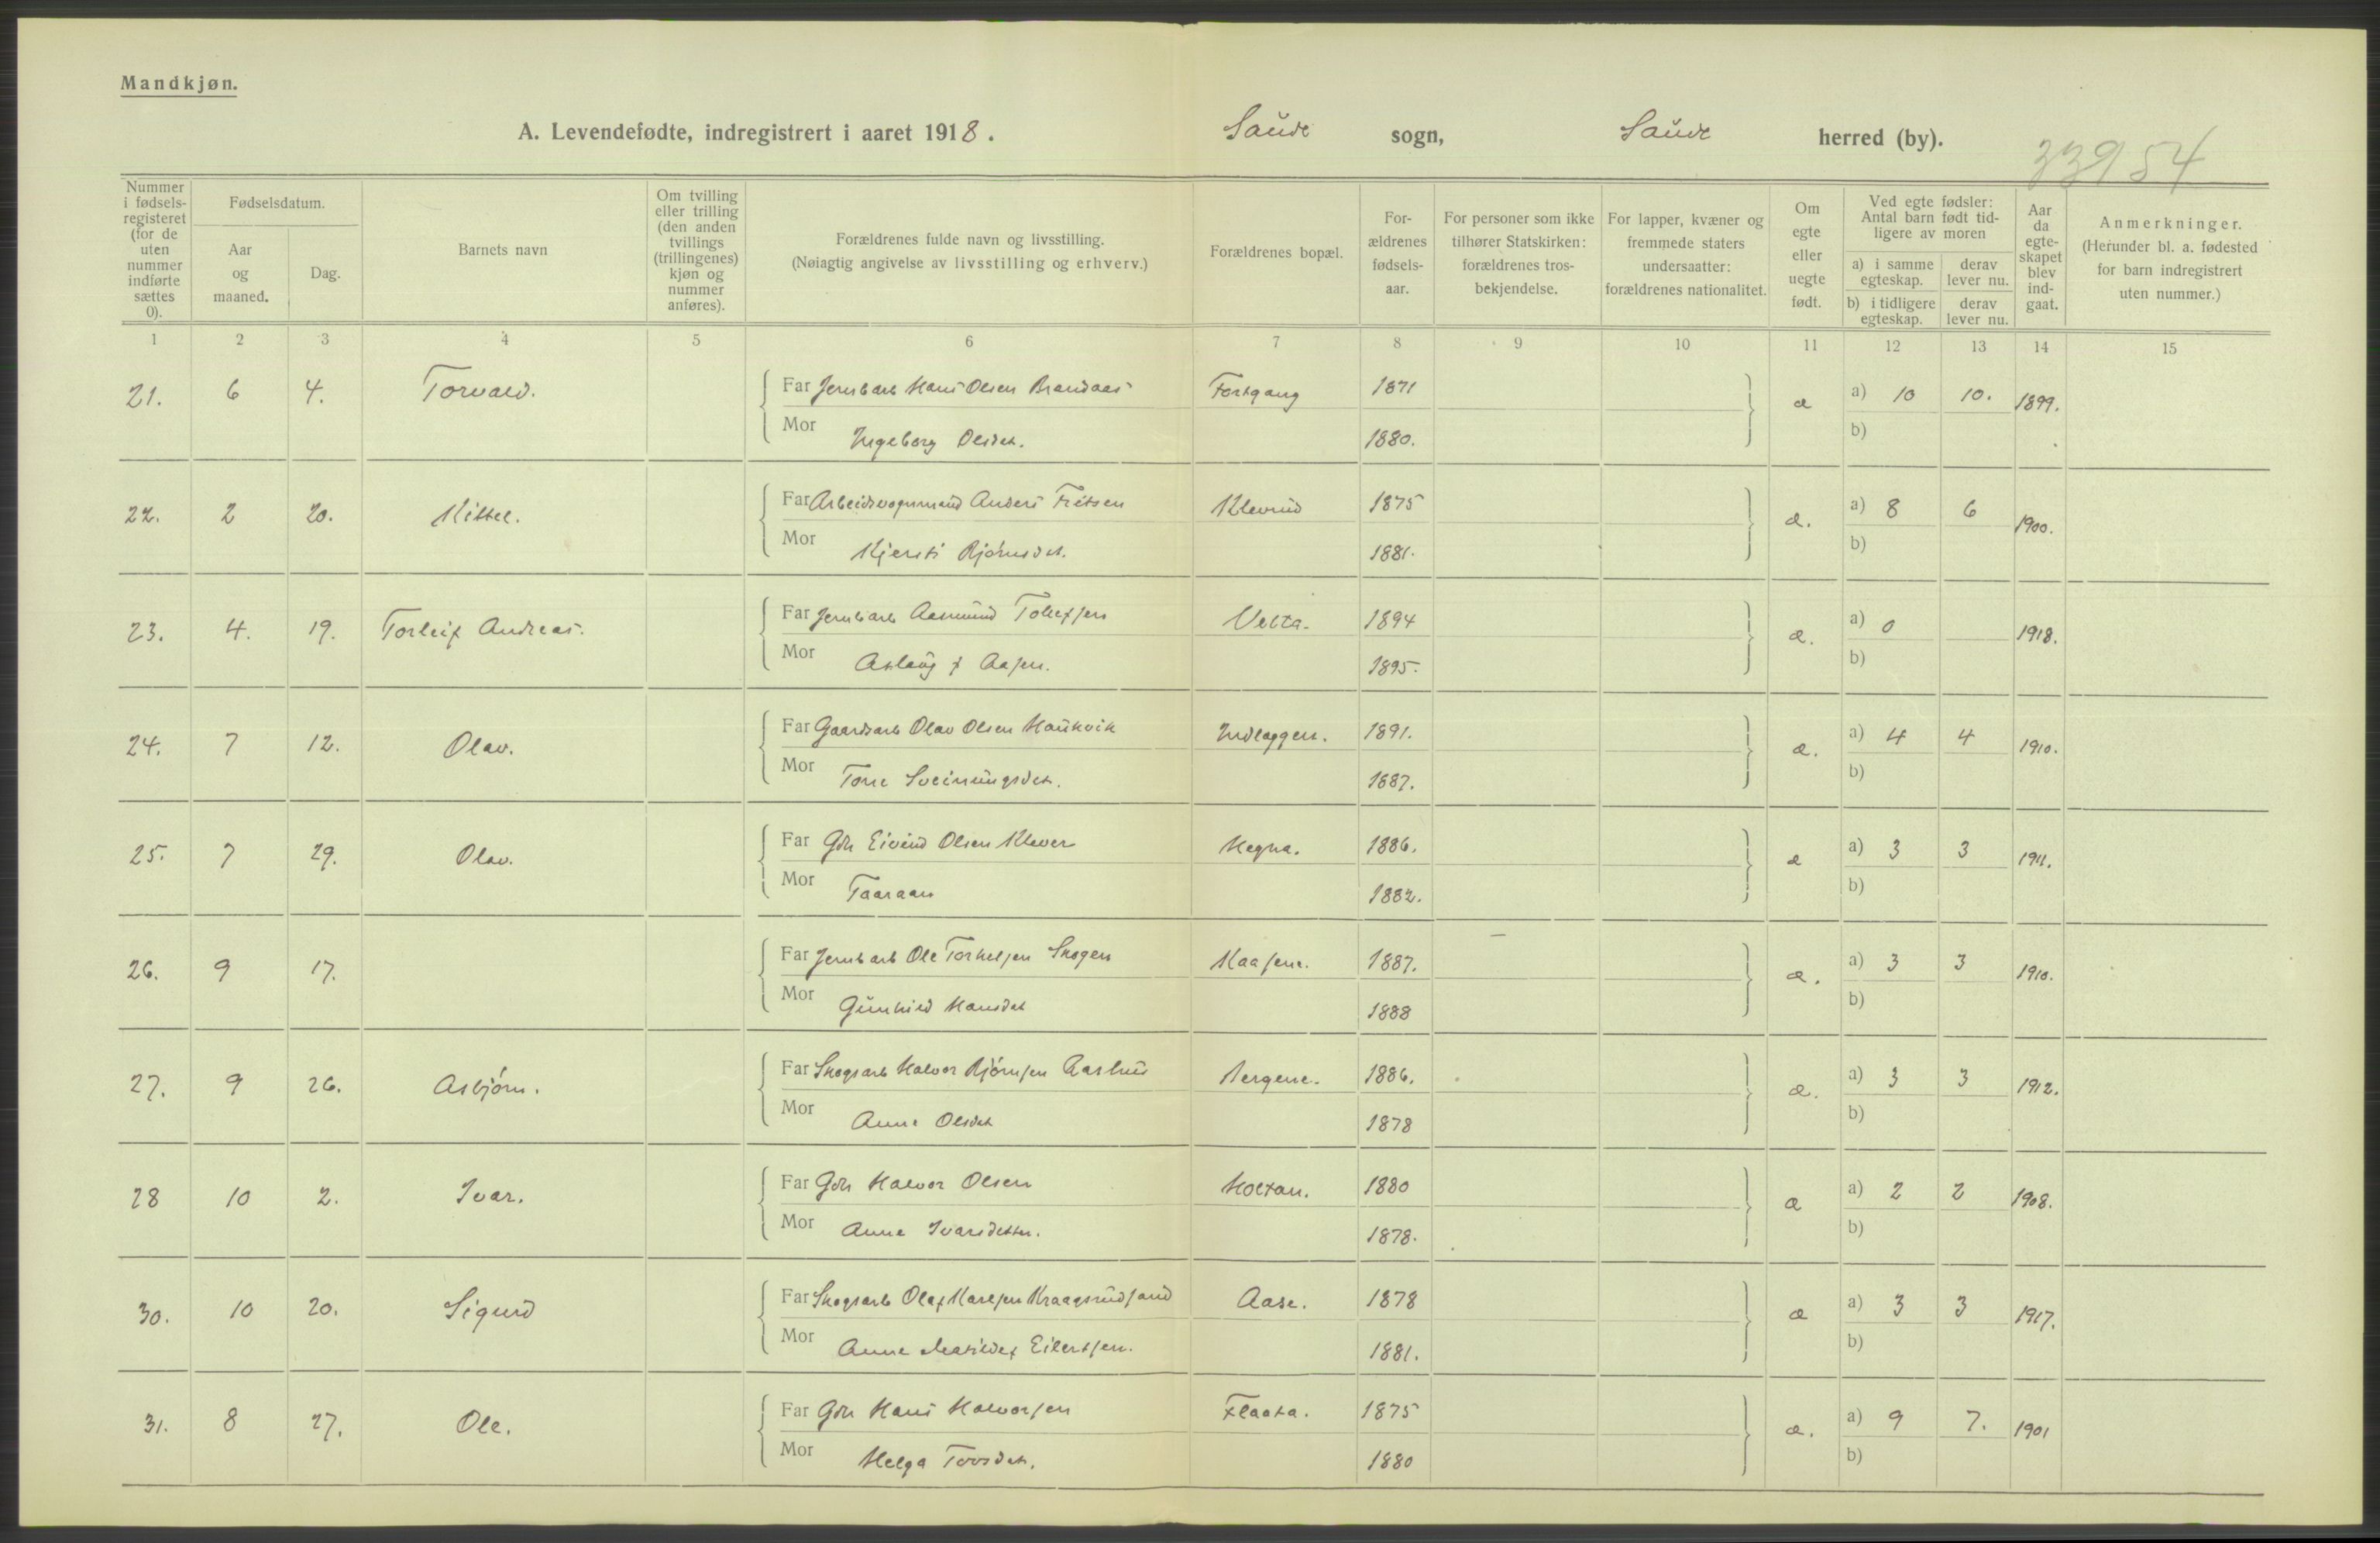 Mandkjøn.
A. Levendefødte, indregistrert i aaret 1918. Saude sogn, Saude herred (by).
33954
Nummer i fødselsregisteret (for de uten nummer indførte sættes 0).
Fødselsdatum.
Aar og maaned.
Dag.
Barnets navn
Om tvilling eller trilling (den anden tvillings (trillingenes) kjøn og nummer anføres).
Forældrenes fulde navn og livsstilling.
(Nøiagtig angivelse av livsstilling og erhverv.)
Forældrenes bopæl.
Forældrenes fødselsaar.
For personer som ikke tilhører Statskirken: forældrenes trosbekjendelse.
For lapper, kvæner og fremmede staters undersaatter: forældrenes nationalitet.
Om egte eller uegte født.
Ved egte fødsler: Antal barn født tidligere av moren
a) i samme egteskap.
derav lever nu.
b) i tidligere egteskap.
derav lever nu.
Aar da egteskapet blev indgaat.
Anmerkninger.
(Herunder bl. a. fødested for barn indregistrert uten nummer.)
1 2 3 4 5 6 7 8 9 10 11 12 13 14 15
21. 6 4. Torvald. Far Jernbarb Hans Olsen Brandaas Fortgang 1871 æ a) 10 10. 1899.
Mor Ingeborg Olsdet. 1880. b)
22. 2 20. Kittel. Far Arbeidsvognmand Anders Fritsen Klevrud 1875 æ. a) 8 6 1900.
Mor Kjersti Bjørnsdt. 1881. b)
23. 4. 19. Torleif Andreas. Far Jernbarb Aasmund Tollefsen Velta. 1894 æ. a) 0 1918.
Mor Aslaug f Aasen. 1895. b)
24. 7 12. Olav. Far Gaardsarb Olav Olsen Haukvik Indlaggen. 1891. æ. a) 4 4 1910.
Mor Tone Sveinungsdet. 1887. b)
25. 7 29. Olav. Far Gdr Eivind Olsen Klever Hegna. 1886. æ a) 3 3 1911.
Mor Taaraan 1882. b)
26. 9 17. Far Jernbarb Ole Torkelsen Skogen Kaasene. 1887. æ. a) 3 3 1910.
Mor Gunhild Hansdet 1888 b)
27. 9 26. Asbjørn. Far Skogsarb Halvor Bjørnsen Aarhus Bergene. 1886. æ. a) 3 3 1912.
Mor Anne Olsdet 1878 b)
28 10 2. Ivar. Far Gdr Halvor Olsen Holtan. 1880 æ a) 2 2 1908.
Mor Anne Ivarsdetter. 1878. b)
30. 10 20. Sigurd Far Skogsarb Olaf Karlsen Kraagsrudsand Aase. 1878 æ a) 3 3 1917.
Mor Anne Eilertsen. 1881. b)
31. 8 27. Ole. Far Gdr Hans Halvorsen Flaata. 1875 æ. a) 9 7. 1901
Mor Helga Tovsdet. 1880 b)